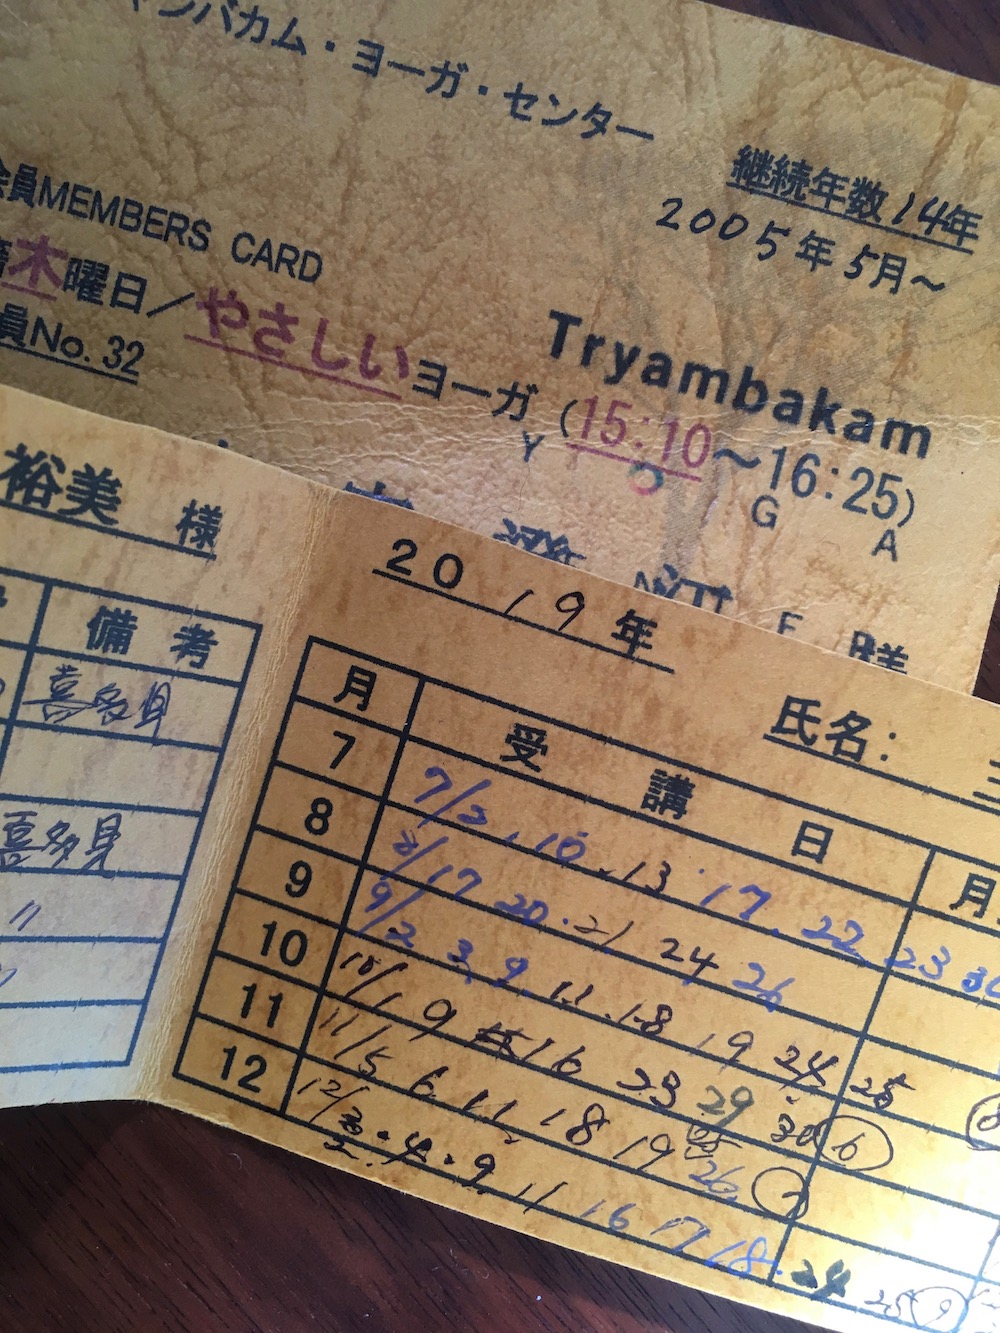 ンバカム・ヨーガ・センター
継続年数14年
2005年5月～
会員MEMBERS CARD
木曜日／やさしいヨーガ(15:10～16:25)
員No.32
Tryambakam
Y O G A
様
裕美 様
備考
喜多見
喜多見
〃
2019年
氏名:
月 受講日 月
7 7/3 . 10 . 13 . 17 . 22 . 23
8 8/17 20 . 21 24 26
9 9/2 3. 9. 11 . 18 19 24 25
10 10/1 9 16 23 29 30 6
11 11/5 6 11 18 19 26
12 12/3 . 4 . 9 11 16 17 18 . 24 25 9